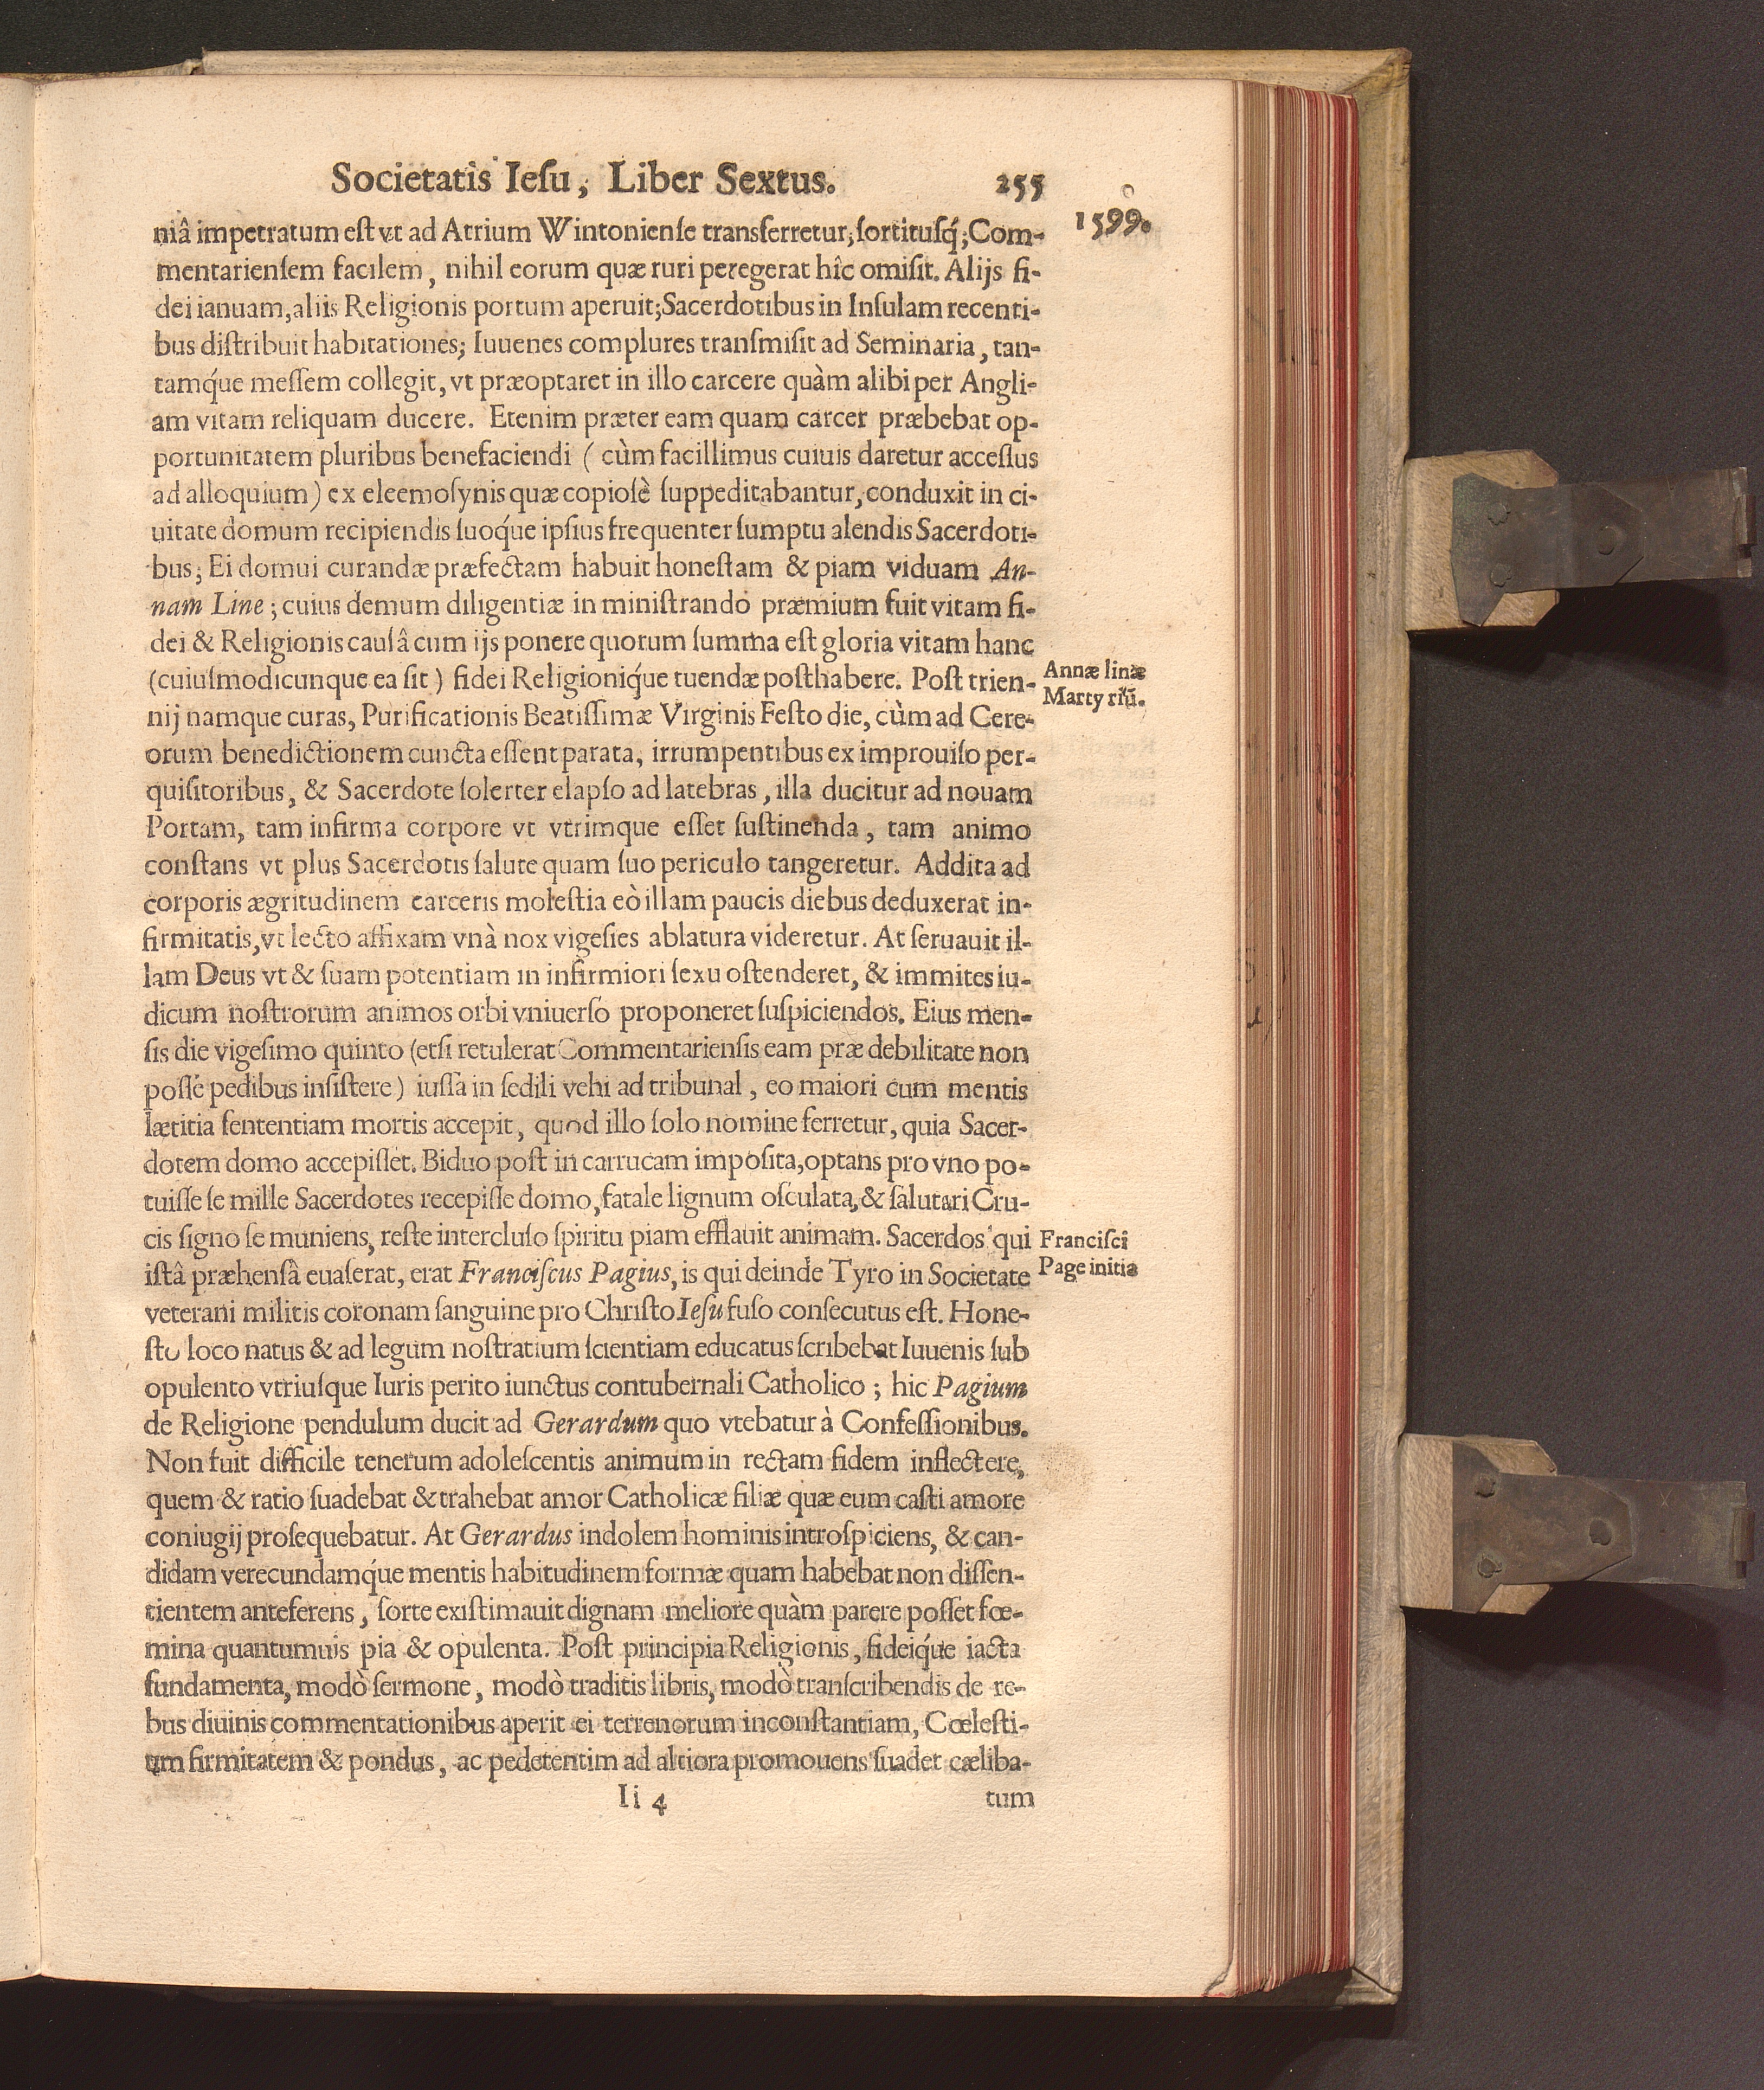 Societatis Iesu, Liber Sextus. 255
1599.
niâ impetratum est vt ad Atrium Wintoniense transferretur; sortitusq́; Com-
mentariensem facilem, nihil eorum quæ ruri peregerat hîc omisit. Alijs fi-
dei ianuam, aliis Religionis portum aperuit; Sacerdotibus in Insulam recenti-
bus distribuit habitationes; Iuuenes complures transmisit ad Seminaria, tan-
tamq́ue messem collegit, vt præoptaret in illo carcere quàm alibi per Angli-
am vitam reliquam ducere. Etenim præter eam quam carcer præbebat op-
portunitatem pluribus benefaciendi (cùm facillimus cuiuis daretur accessus
ad alloquium) ex eleemosynis quæ copiosè suppeditabantur, conduxit in ci-
uitate domum recipiendis suoq́ue ipsius frequenter sumptu alendis Sacerdoti-
bus; Ei domui curandæ præfectam habuit honestam & piam viduam An-
nam Line; cuius demum diligentiæ in ministrando præmium fuit vitam fi-
dei & Religionis causâ cum ijs ponere quorum summa est gloria vitam hanc
(cuiusmodicunque ea sit) fidei Religioniq́ue tuendæ posthabere. Post trien-
Annæ linæ
Martyriũ.
nij namque curas, Purificationis Beatissimæ Virginis Festo die, cùm ad Cere-
orum benedictionem cuncta essent parata, irrumpentibus ex improuiso per-
quisitoribus, & Sacerdote solerter elapso ad latebras, illa ducitur ad nouam
Portam, tam infirma corpore vt vtrimque esset sustinenda, tam animo
constans vt plus Sacerdotis salute quam suo periculo tangeretur. Addita ad
corporis ægritudinem carceris molestia eò illam paucis diebus deduxerat in-
firmitatis, vt lecto affixam vnà nox vigesies ablatura videretur. At seruauit il-
lam Deus vt & suam potentiam in infirmiori sexu ostenderet, & immites iu-
dicum nostrorum animos orbi vniuerso proponeret suspiciendos. Eius men-
sis die vigesimo quinto (etsi retulerat Commentariensis eam præ debilitate non
posse pedibus insistere) iussa in sedili vehi ad tribunal, eo maiori cum mentis
lætitia sententiam mortis accepit, quod illo solo nomine ferretur, quia Sacer-
dotem domo accepisset. Biduo post in carrucam imposita, optans pro vno po-
tuisse se mille Sacerdotes recepisse domo, fatale lignum osculata, & salutari Cru-
cis signo se muniens, reste intercluso spiritu piam efflauit animam. Sacerdos qui
Francisci
Page initia
istâ præhensâ euaserat, erat Franciscus Pagius, is qui deinde Tyro in Societate
veterani militis coronam sanguine pro Christo Iesu fuso consecutus est. Hone-
sto loco natus & ad legum nostratium scientiam educatus scribebat Iuuenis sub
opulento vtriusque Iuris perito iunctus contubernali Catholico; hic Pagium
de Religione pendulum ducit ad Gerardum quo vtebatur à Confessionibus.
Non fuit difficile tenerum adolescentis animum in rectam fidem inflectere,
quem & ratio suadebat & trahebat amor Catholicæ filiæ quæ eum casti amore
coniugij prosequebatur. At Gerardus indolem hominis introspiciens, & can-
didam verecundamq́ue mentis habitudinem formæ quam habebat non dissen-
tientem anteferens, sorte existimauit dignam meliore quàm parere posset fœ-
mina quantumuis pia & opulenta. Post principia Religionis, fideiq́ue iacta
fundamenta, modò sermone, modò traditis libris, modò transcribendis de re-
bus diuinis commentationibus aperit ei terrenorum inconstantiam, Cœlesti-
um firmitatem & pondus, ac pedetentim ad altiora promouens suadet cæliba-
Ii 4 tum